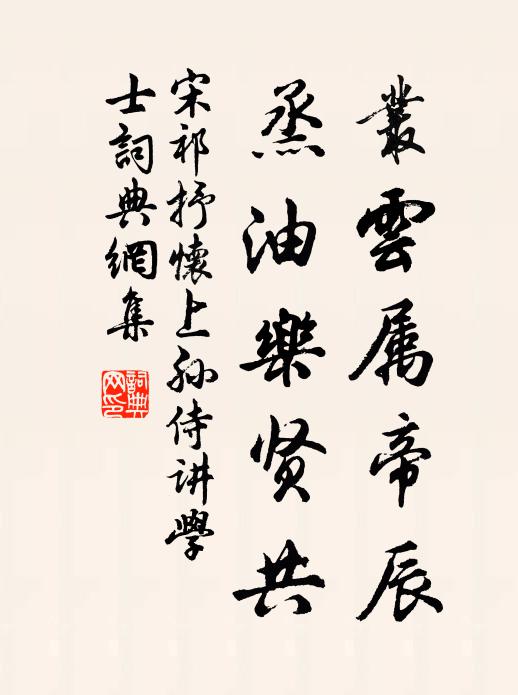 叢雲属帝辰
烝油樂贤共
宋祁抒懷上孙侍讲學
士詞典網集
詞典
网印